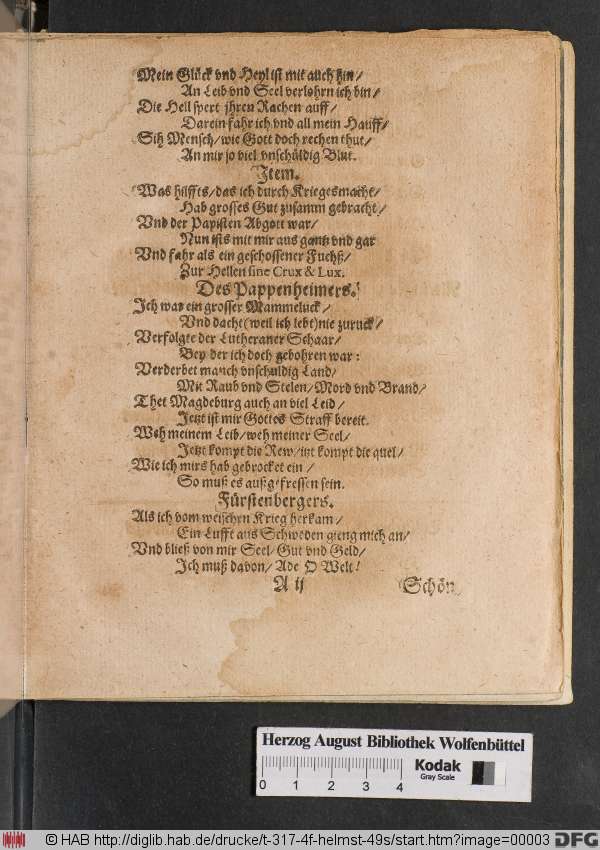 Mein Glück vnd Heyl ist mit auch hin/
An Leib vnd Seel verlohrn ich bin/
Die Hell spert jhren Rachen auff/
Darein fahr ich vnd all mein Hauff/
Sih Mensch/ wie Gott doch rechen thut/
An mir so viel vnschüldig Blut.
Item.
Was hilffts/ das ich durch Kriegesmacht/
Hab grosses Gut zusamm gebracht/
Vnd der Papisten Abgott war/
Nun ists mit mir aus gantz vnd gar
Vnd fahr als ein geschossener Fuchß/
Zur Hellen sine Crux & Lux.
Des Pappenheimers.
Ich war ein grosser Mammeluck/
Vnd dacht (weil ich lebt) nie zuruck/
Verfolgte der Lutheraner Schaar/
Bey der ich doch gebohren war:
Verderbet manch vnschuldig Land/
Mit Raub vnd Stelen/ Mord vnd Brand/
Thet Magdeburg auch an viel Leid/
Jetzt ist mir Gottes Straff bereit.
Weh meinem Leib/ weh meiner Seel/
Jetzt kompt die Rew/ itzt kompt die quel/
Wie ich mirs hab gebrocket ein/
So muß es außgefressen sein.
Fürstenbergers.
Als ich vom welschen Krieg herkam/
Ein Lufft aus Schweden gieng mich an/
Vnd bließ von mir Seel/ Gut vnd Geld/
Ich muß davon/ Ade O Welt!
A ij Schön
Herzog August Bibliothek Wolfenbüttel
0 1 2 3 4 Kodak
Gray Scale
© HAB http://diglib.hab.de/drucke/t-317-4f-helmst-49s/start.htm?image=00003 DFG